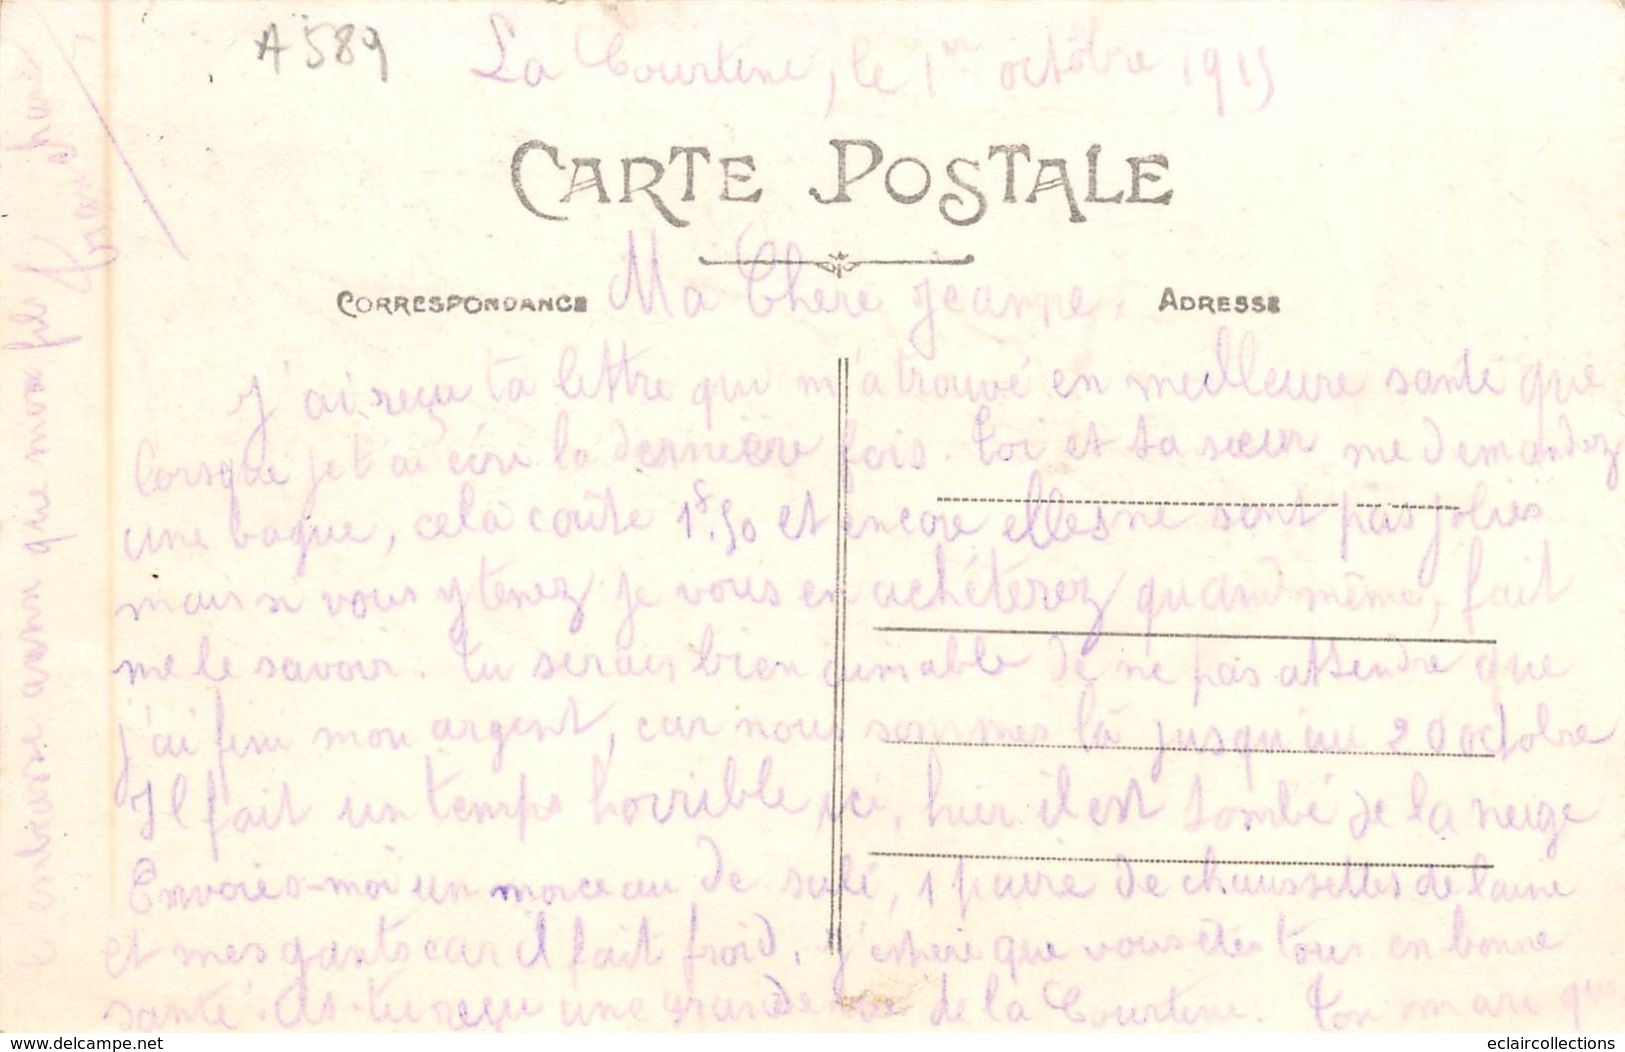 A589
La Courtine, le 1er octobre 1915
CARTE POSTALE
CORRESPONDANCE
ADRESSE
Ma Chère Jeanne.
J'ai reçu ta lettre qui m'a trouvé en meilleure santé que
lorsque je t'ai écri la dernière fois. Toi et ta sœur me demandez
une bague, cela coûte 1f.50 et encore elles ne sont pas jolies
mais si vous y tenez je vous en achéterez quand même, fait
me le savoir. Tu serais bien aimable de ne pas attendre que
j'ai fini mon argent, car nous sommes là jusqu'au 20 octobre
Il fait un temps horrible ici, hier il est tombé de la neige
Envoies-moi un morceau de salé, 1 paire de chaussettes de laine
et mes gants car il fait froid. J'espère que vous êtes tous en bonne
santé. As-tu reçu une grande vue de la Courtine. Ton mari qui
t'embrasse ainsi que mon fils
delcampe.net
eclaircollections